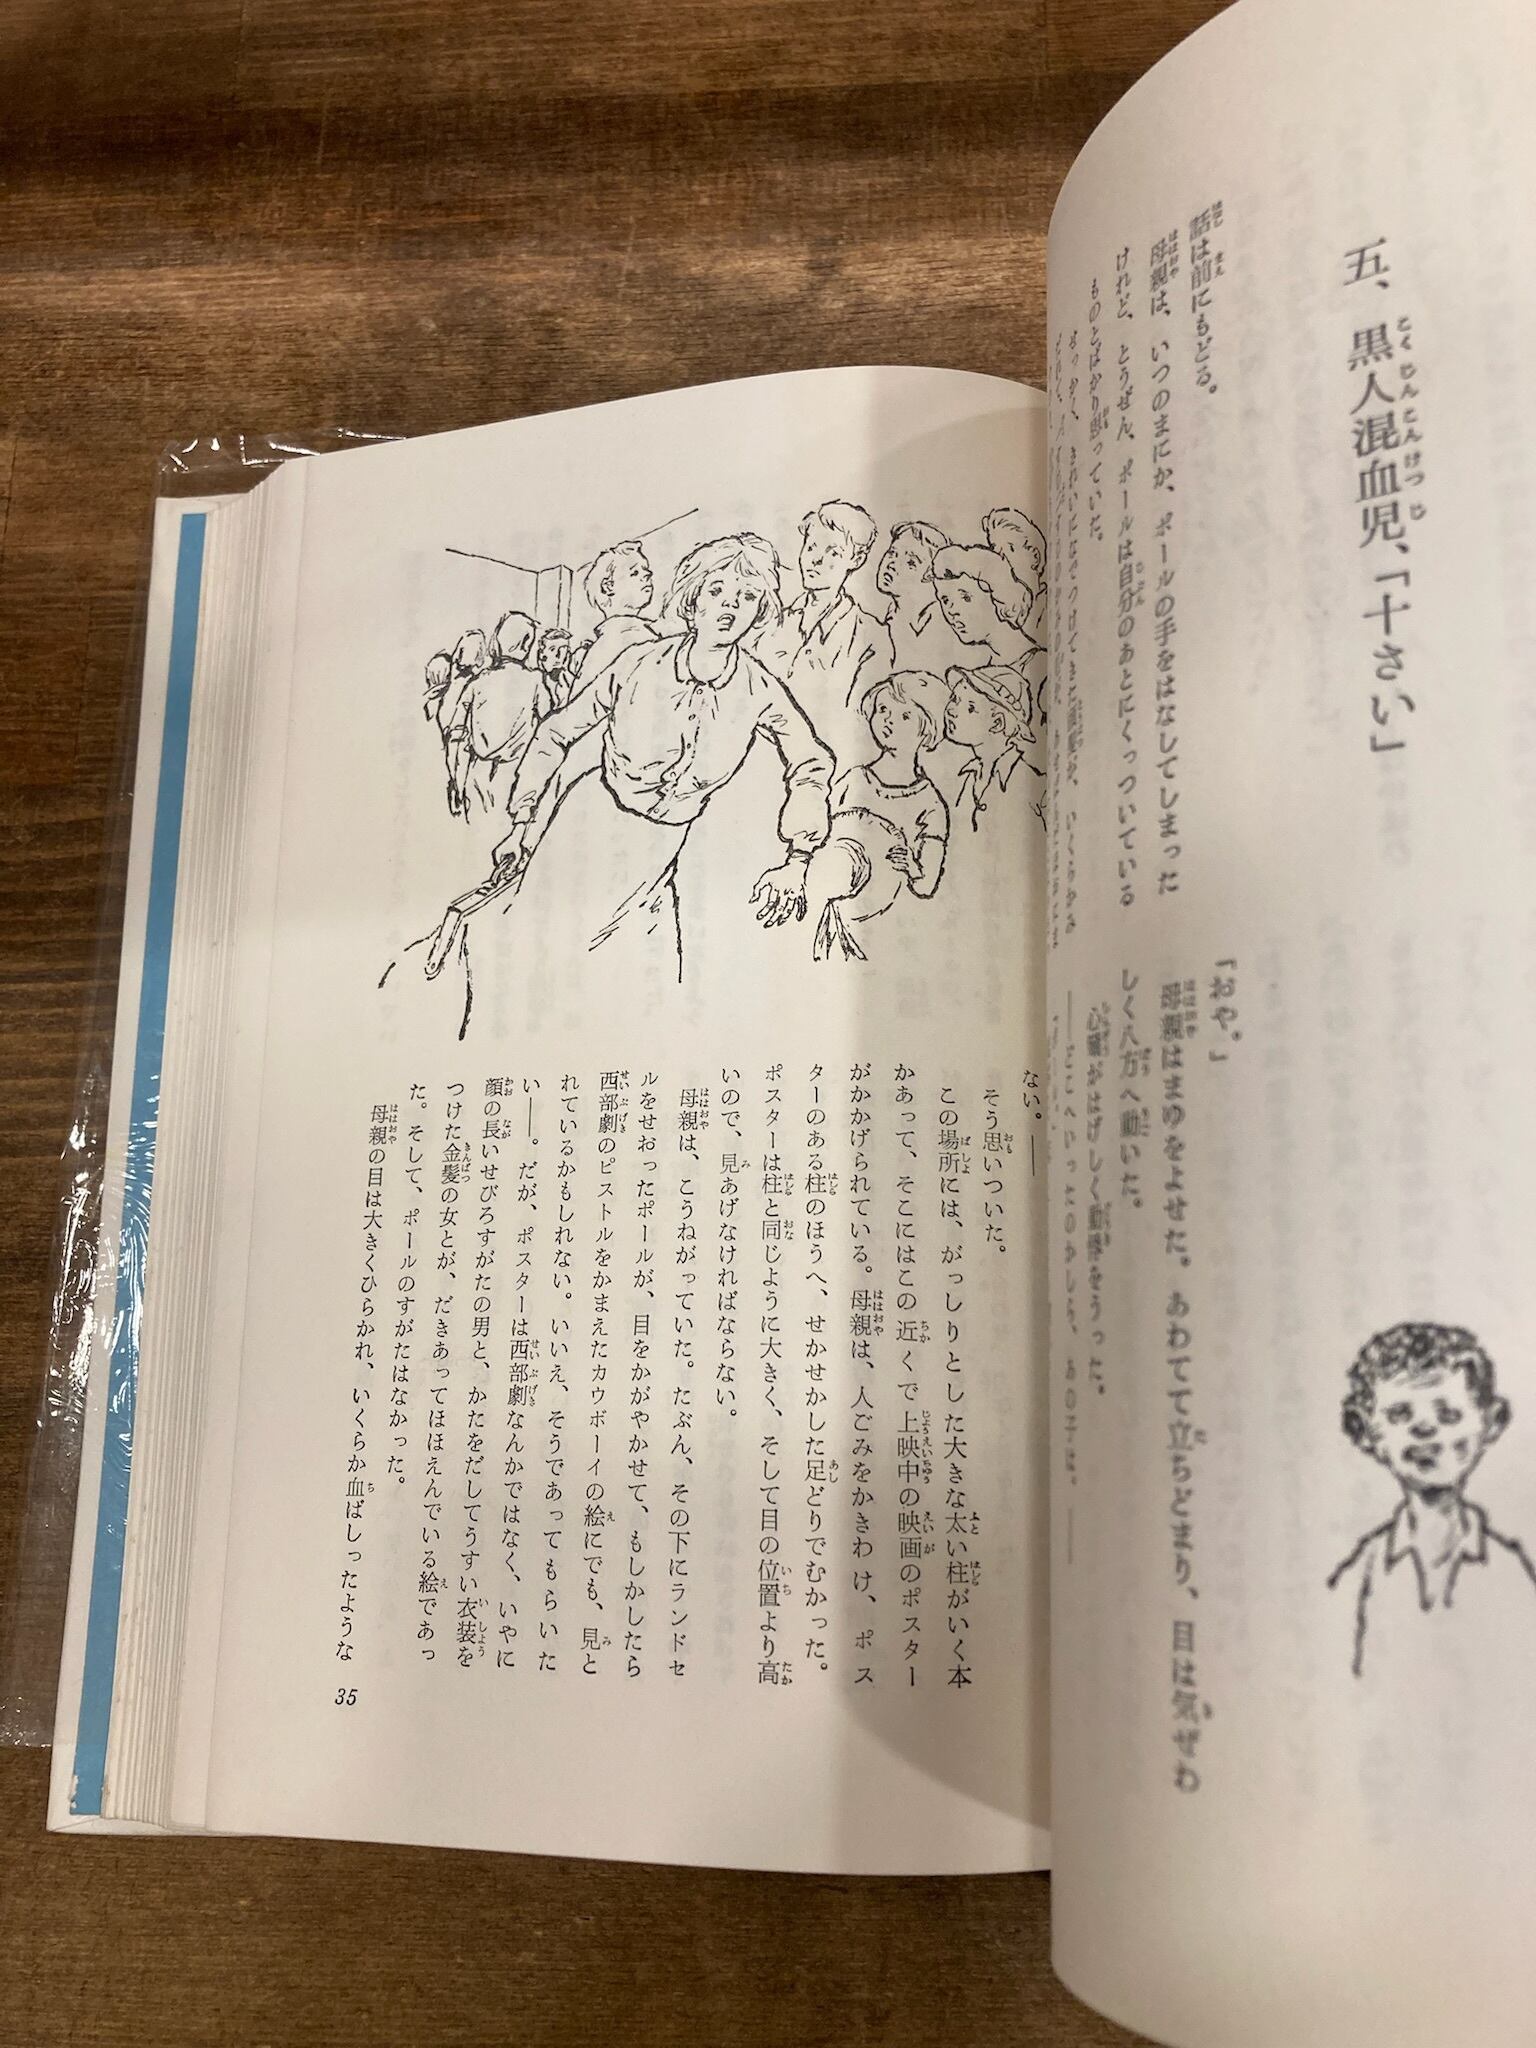 五、黒人混血児、「十さい」
話は前にもどる。
母親は、いつのまにか、ポールの手をはなしてしまった
けれど、とうぜん、ポールは自分のあとにくっついている
ものとばかり思っていた。
「おや。」
母親はまゆをよせた。あわてて立ちどまり、目は気ぜわ
しく八方へ動いた。
心臓がはげしく動悸をうった。
ない。――
そう思いついた。
この場所には、がっしりとした大きな太い柱がいく本
かあって、そこにはこの近くで上映中の映画のポスター
がかかげられている。母親は、人ごみをかきわけ、ポス
ターのある柱のほうへ、せかせかした足どりでむかった。
ポスターは柱と同じように大きく、そして目の位置より高
いので、見あげなければならない。
母親は、こうねがっていた。たぶん、その下にランドセ
ルをせおったポールが、目をかがやかせて、もしかしたら
西部劇のピストルをかまえたカウボーイの絵にでも、見と
れているかもしれない。いいえ、そうであってもらいた
い――。だが、ポスターは西部劇なんかではなく、いやに
顔の長いせびろすがたの男と、かたをだしてうすい衣装を
つけた金髪の女とが、だきあってほほえんでいる絵であっ
た。そして、ポールのすがたはなかった。
母親の目は大きくひらかれ、いくらか血ばしったような
35